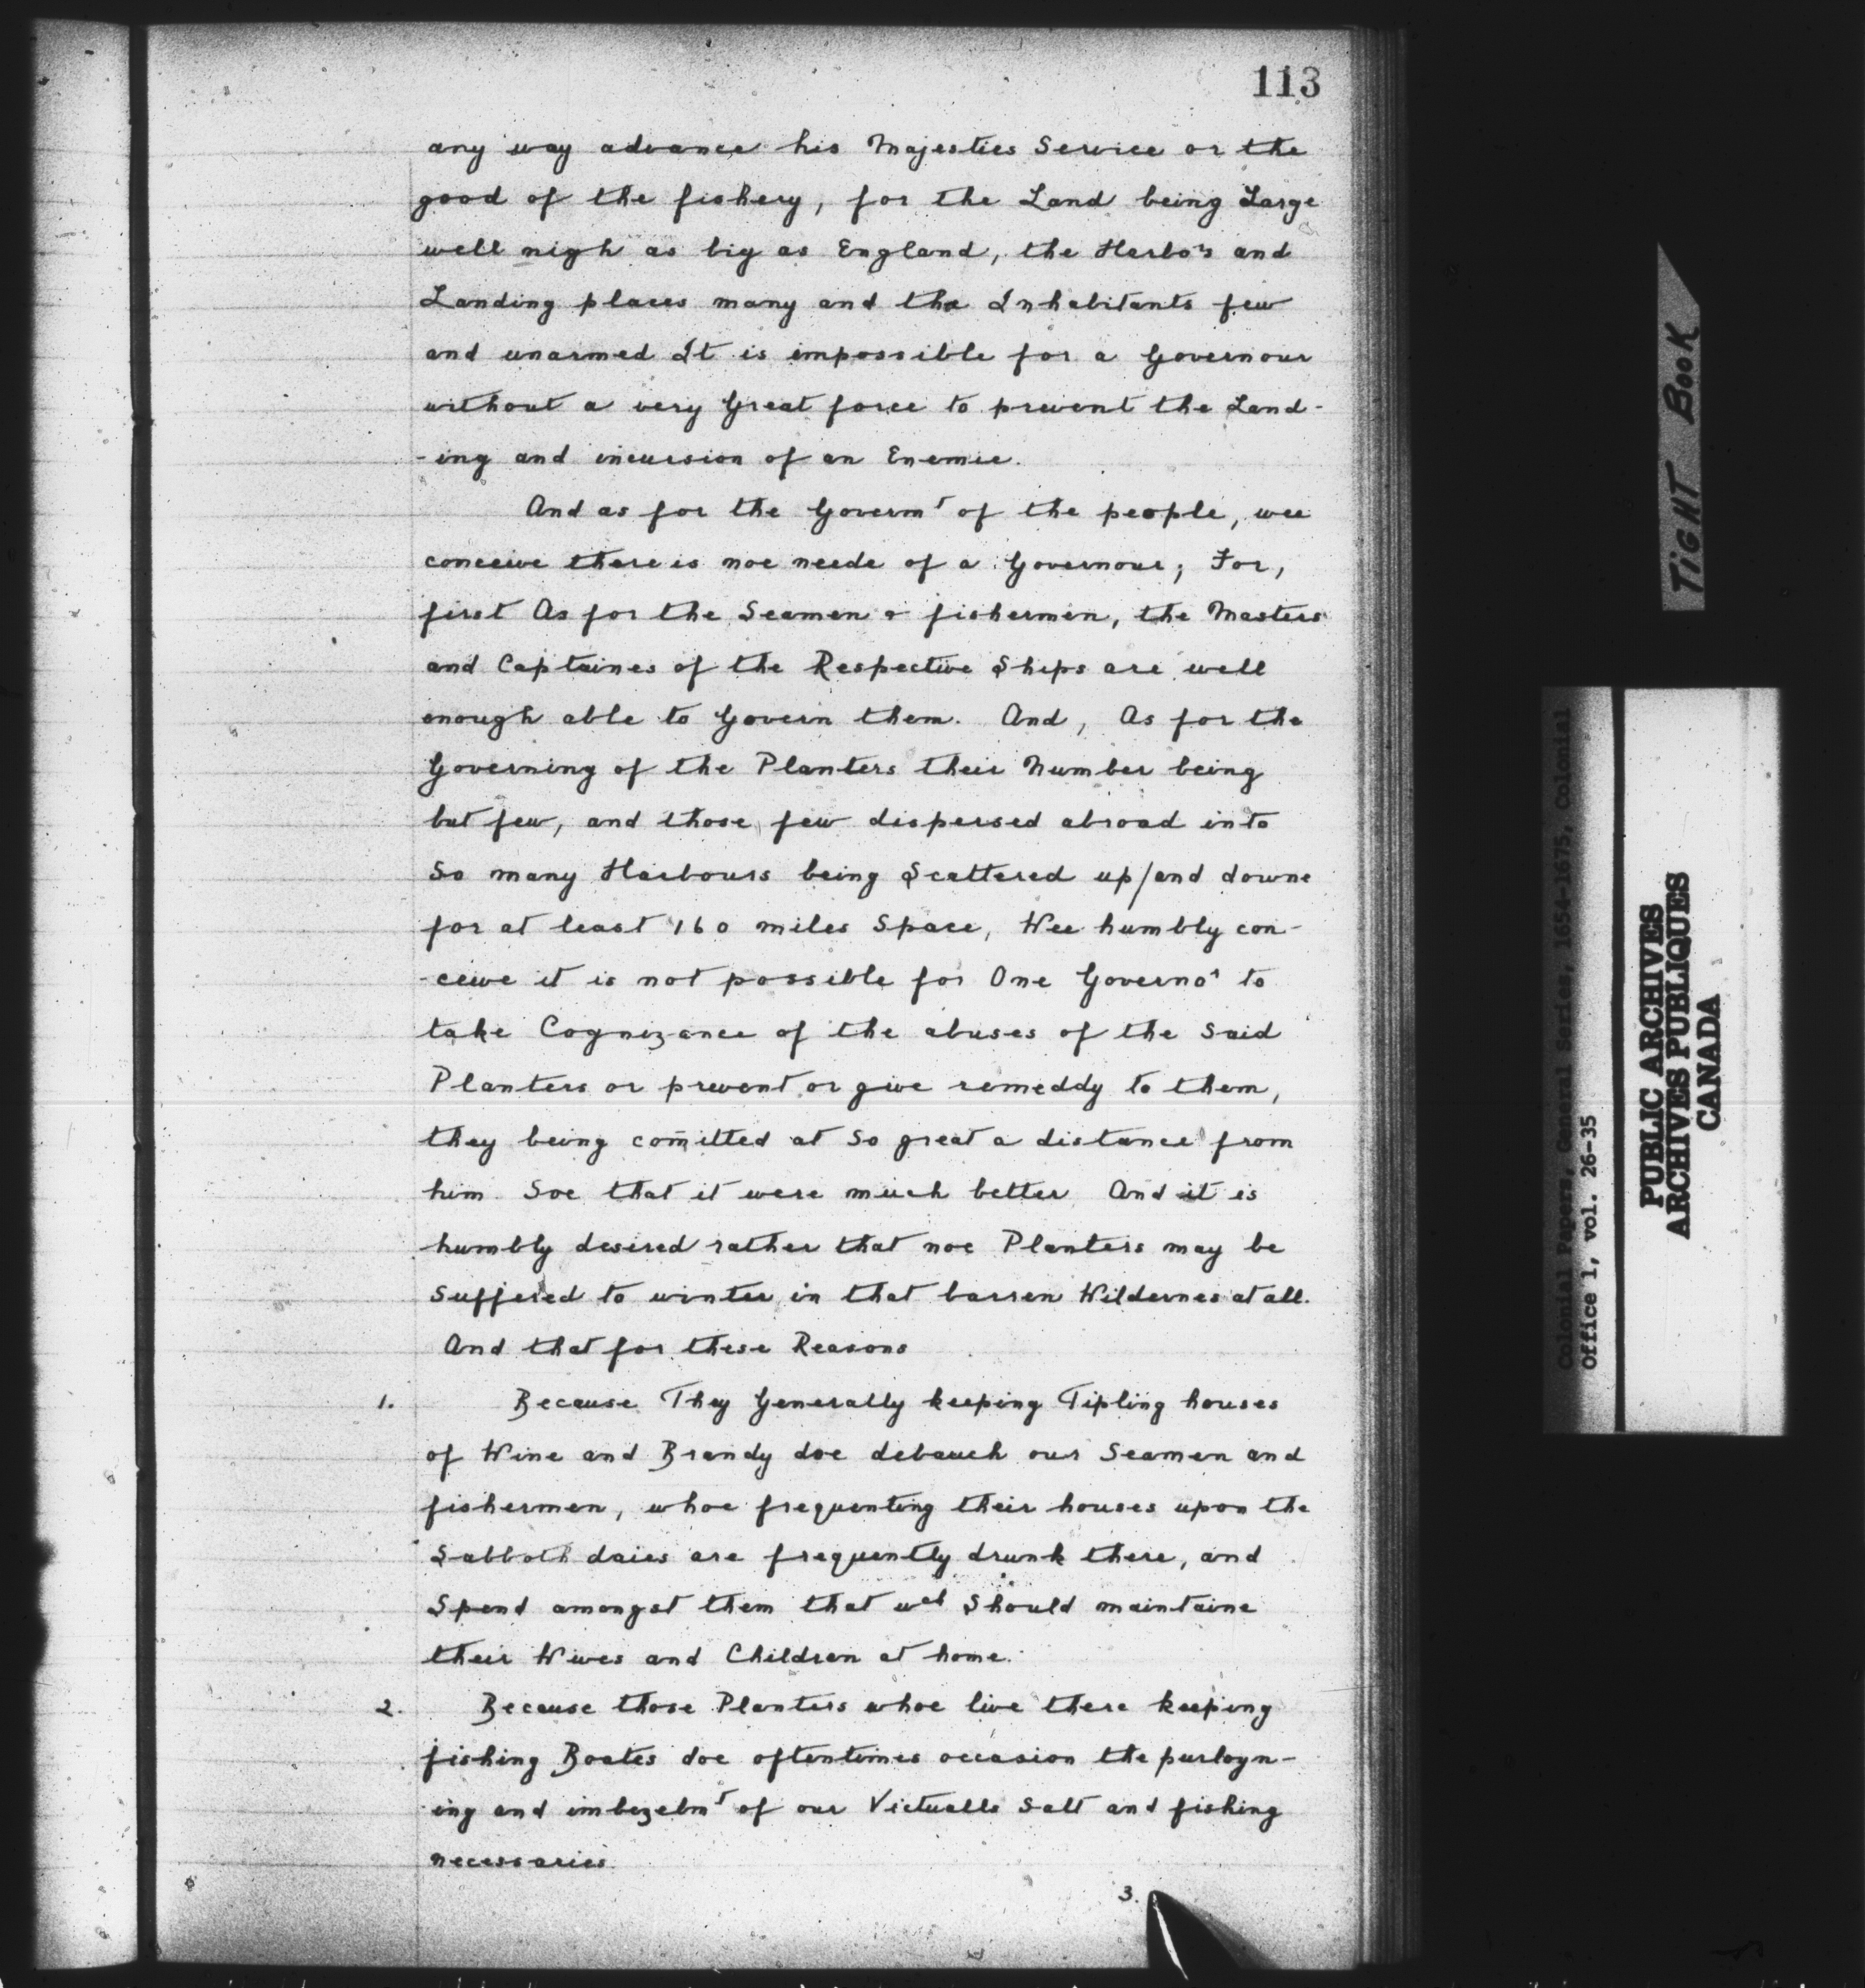 113
any way advance his Majesties Service or the
good of the fishery, for the Land being Large
well nigh as big as England, the Harbo.rs and
Landing places many and the Inhabitants few
and unarmed It is impossible for a Governour
without a very Great force to prevent the Land-
-ing and incursion of an Enemie.
And as for the Governmt of the people, wee
conceive there is noe neede of a Governour; For,
first As for the Seamen & fishermen, the Masters
and Captaines of the Respective Ships are well
enough able to Govern them. And, As for the
Governing of the Planters their Number being
but few, and those few dispersed abroad into
So many Harbours being Scattered up/and downe
for at least 160 miles Space, Wee humbly con-
-ceive it is not possible for One Governor to
take Cognizance of the abuses of the Said
Planters or prevent or give remeddy to them,
they being com̄itted at So great a distance from
him Soe that it were much better And it is
humbly desired rather that noe Planters may be
Suffered to winter in that barren Wildernes at all.
And that for these Reasons
1. Because They Generally keeping Tipling houses
of Wine and Brandy doe debauch our Seamen and
fishermen, whoe frequenting their houses upon the
Sabboth daies are frequently drunk there, and
Spend amongst them that wch Should maintaine
their Wives and Children at home.
2. Because those Planters whoe live there keeping
fishing Boates doe oftentimes occasion the purloyn-
ing and imbezelmt of our Victualls Salt and fishing
necessaries.
3.
TIGHT BOOK
Colonial Papers, General Series, 1654-1675, Colonial
Office 1, vol. 26-35
PUBLIC ARCHIVES
ARCHIVES PUBLIQUES
CANADA